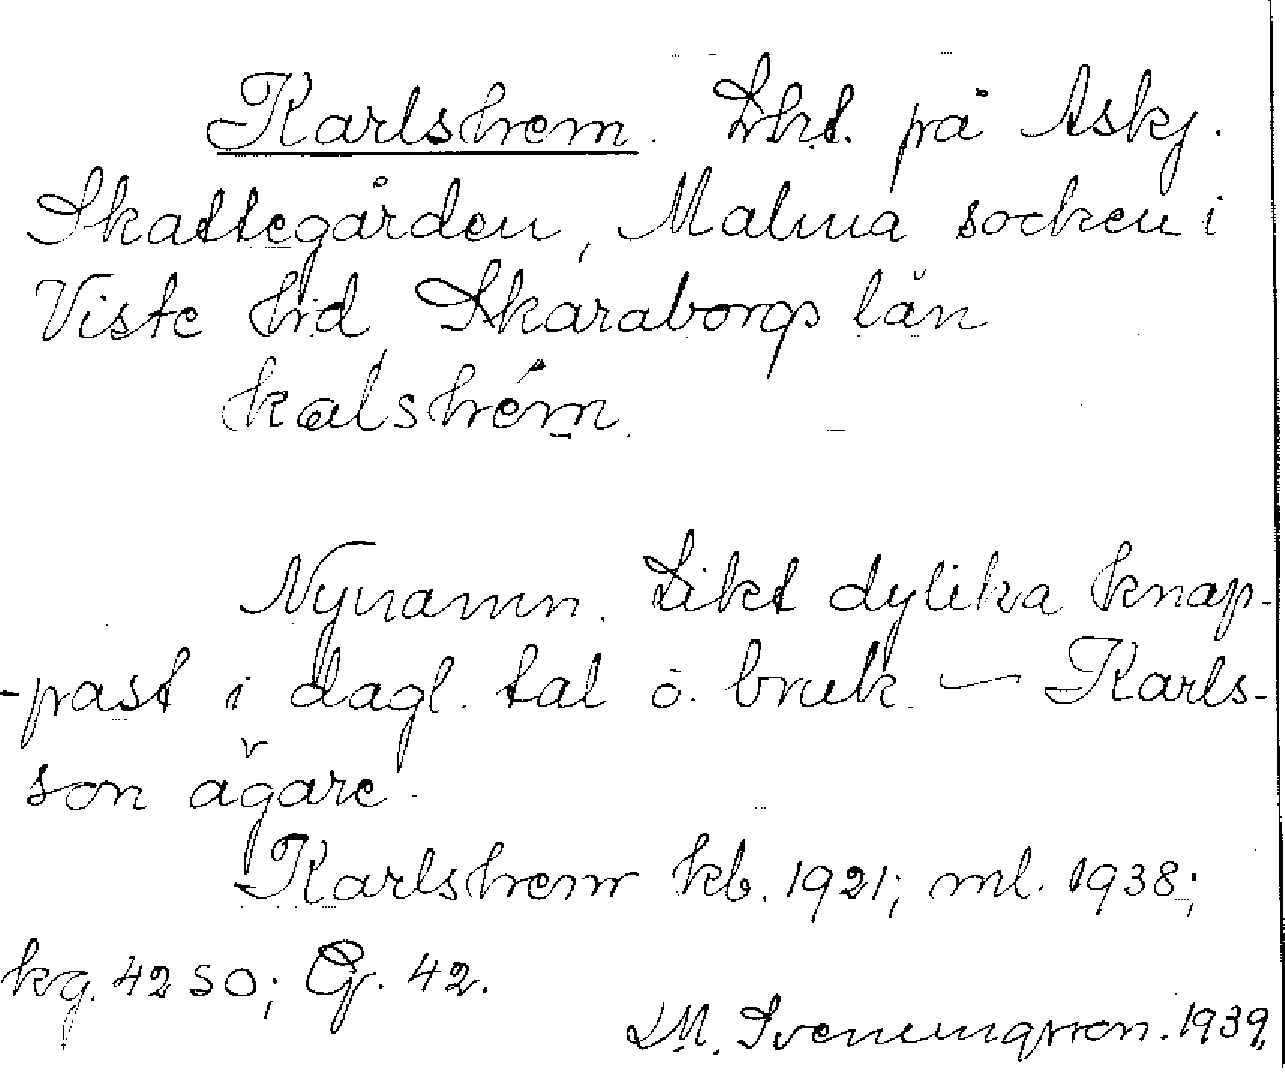 Karlshem. Lht. på Askj.
Skattegården, Malma socken i
Viste hd Skaraborgs län
kalshém.
Nynamn. Likt dylika knap-
-past i dagl. tal o. bruk. — Karls-
son ägare.
Karlshem kb. 1921; ml. 1938;
kg. 42 SO; Gr. 42.
LM. Svenungsson. 1939.